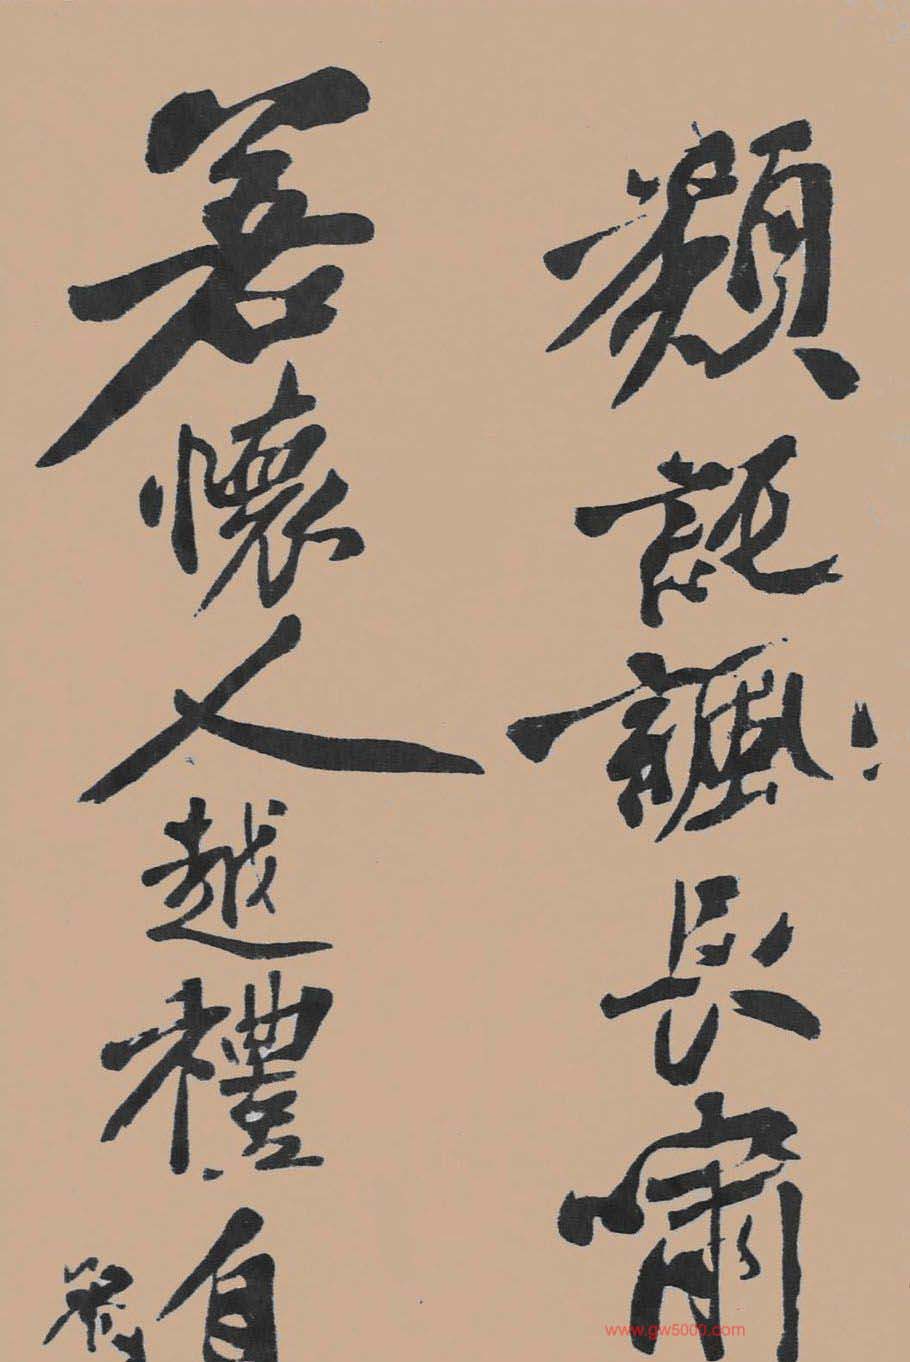 類託諷長嘯
若懷人越禮自
www.gw5000.com